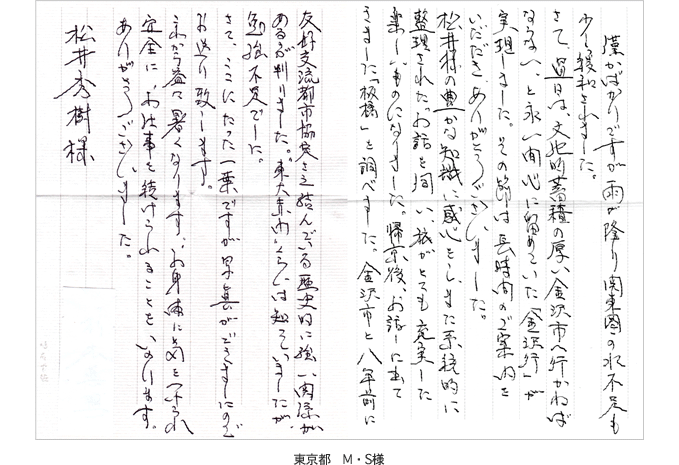 僅かばかりですが雨が降り関東圏の水不足も
少し緩和されました。
さて、過日は、文化的蓄積の厚い金沢市へ行かねば
ならない、と永い間心に留めていた「金沢行」が
実現しました。その節は長時間のご案内を
いただきありがとうございました。
松井様の豊かな知識に感心をし、また系統的に
整理されたお話を伺い、旅がとても充実した
楽しいものになりました。帰京後、お話しに出て
きました「板橋」を調べました。金沢市と八年前に
友好交流都市協定を結んでいる歴史的に強い関係が
あるが判りました。“東大赤門”くらいは知っていましたが、
勉強不足でした。
さて、ここにたった一葉ですが写真ができましたので
お送り致します。
これから益々暑くなります。お身体に気を付られ
安全に、お仕事を続けられることをいのります。
ありがとうございました。
松井秀樹様
東京都 M・S様